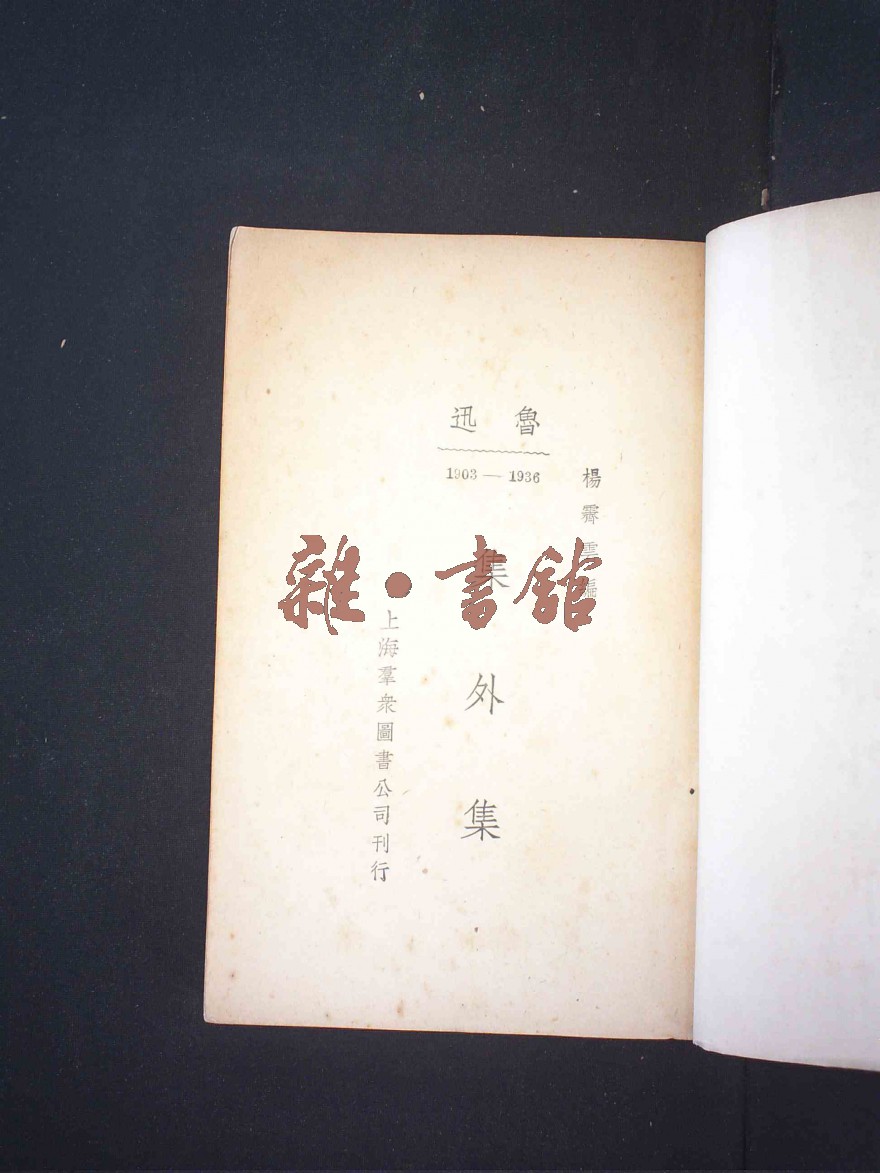 魯迅
1903 — 1936
楊霽雲編
集外集
上海羣衆圖書公司刊行
雜•書館